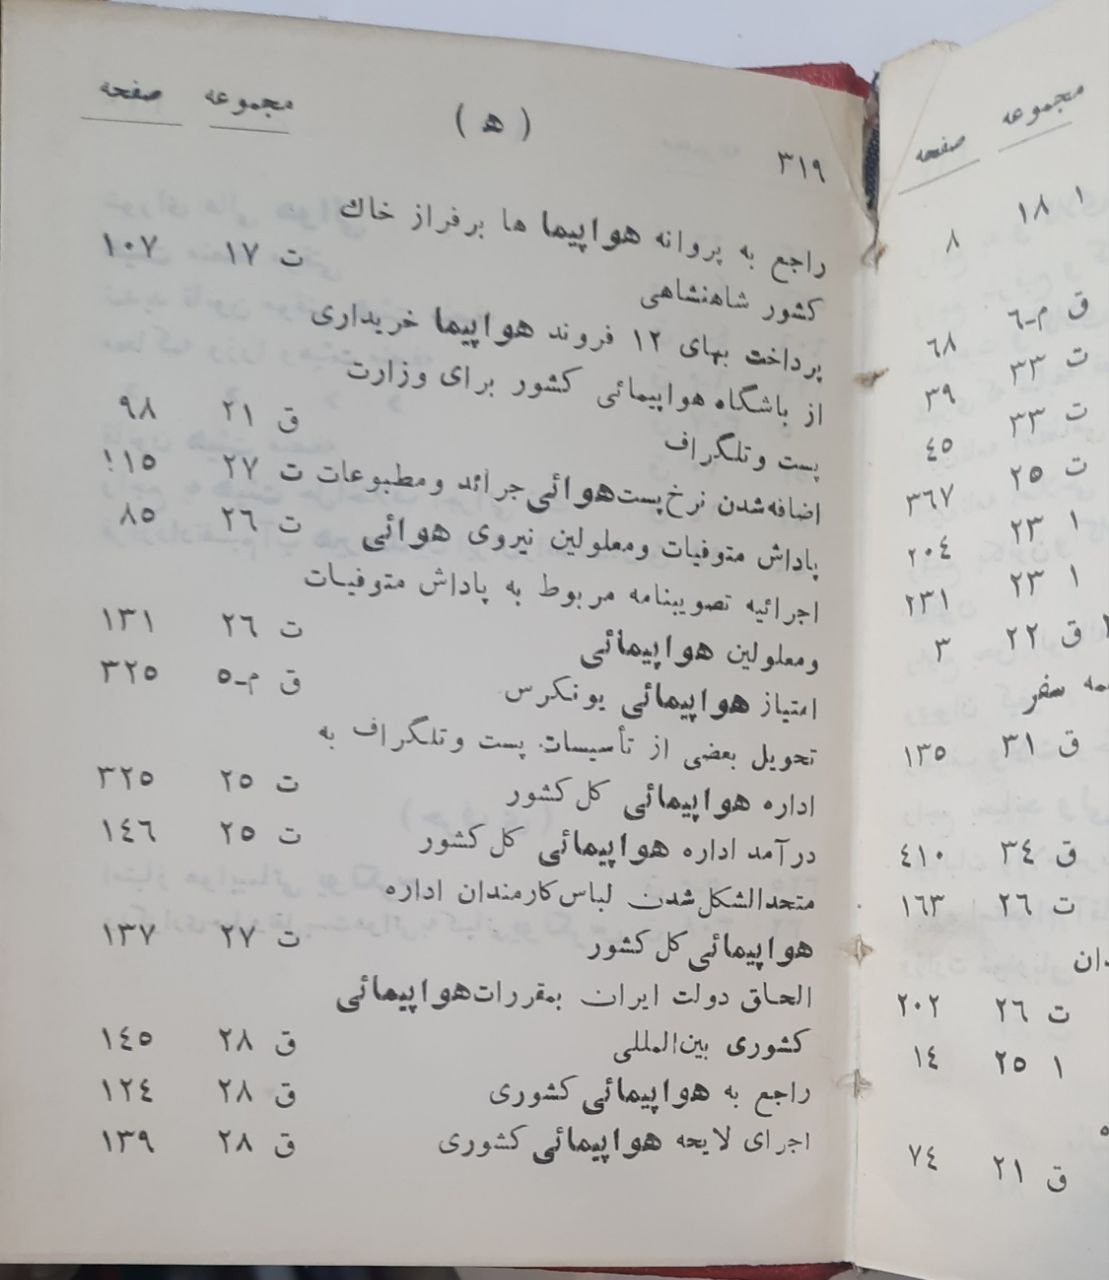 مجموعه صفحه
( ه )
۳۱۹
راجع به پروانه هواپیما ها برفراز خاك
کشور شاهنشاهی ت ۱۷ ۱۰۷
پرداخت بهای ۱۲ فروند هواپیما خریداری
از باشگاه هواپیمائی کشور برای وزارت
پست وتلگراف ق ۲۱ ۹۸
اضافه‌شدن نرخ پست‌هوائی جرائد ومطبوعات ت ۲۷ ۱۵!
پاداش متوفیات ومعلولین نیروی هوائی ت ۲۶ ۸۵
اجرائیه تصویبنامه مربوط به پاداش متوفیات
ومعلولین هواپیمائی ت ۲۶ ۱۳۱
امتیاز هواپیمائی یونکرس ق م-۵ ۳۲۵
تحویل بعضی از تأسیسات پست وتلگراف به
اداره هواپیمائی کل کشور ت ۲۵ ۳۲۵
درآمد اداره هواپیمائی کل کشور ت ۲۵ ۱۴۶
متحدالشکل‌شدن لباس‌کارمندان اداره
هواپیمائی‌کل کشور ت ۲۷ ۱۳۷
الحاق دولت ایران بمقررات‌هواپیمائی
کشوری بین‌المللی ق ۲۸ ۱۴۵
راجع به هواپیمائی کشوری ق ۲۸ ۱۲۴
اجرای لایحه هواپیمائی کشوری ق ۲۸ ۱۳۹
مجموعه صفحه
۱ ۱۸ ۸
ق م-۶ ۶۸
ت ۳۳ ۳۹
ت ۳۳ ۴۵
ت ۲۵ ۳۶۷
۱ ۲۳ ۲۰۴
۱ ۲۳ ۲۳۱
ق ۲۲ ۳
سفر
ق ۳۱ ۱۳۵
ق ۳۴ ۴۱۰
ت ۲۶ ۱۶۳
ت ۲۶ ۲۰۲
۱ ۲۵ ۱۴
ق ۲۱ ۷۴